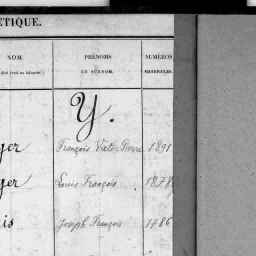 ETIQUE.
NOM. PRÉNOMS NUMÉROS
ET SURNOM. MATRICULES.
Y.
yer François Victor Pierre 1891
yer Louis François 1878
is Joseph François 1786